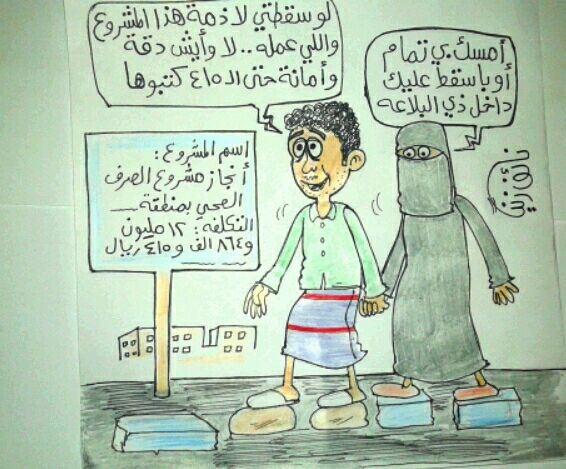 أمسك بي تمام
أو باسقط عليك
داخل ذي البلاعه
لو سقطتي لا ذمة هذا المشروع
واللي عمله .. لا وأيش دقة
وأمانة حتى الـ ٤١٥ كتبوها
إسم المشروع :
أنجاز مشروع الصرف
الصحي بمنطقة
التكلفه : ١٢ مليون
و ٨٦٤ الف و ٤١٥ ريال